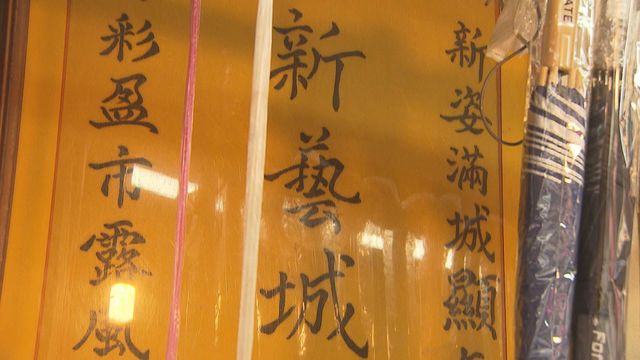 新姿滿城顯
新藝城
彩盈市露風
ATE